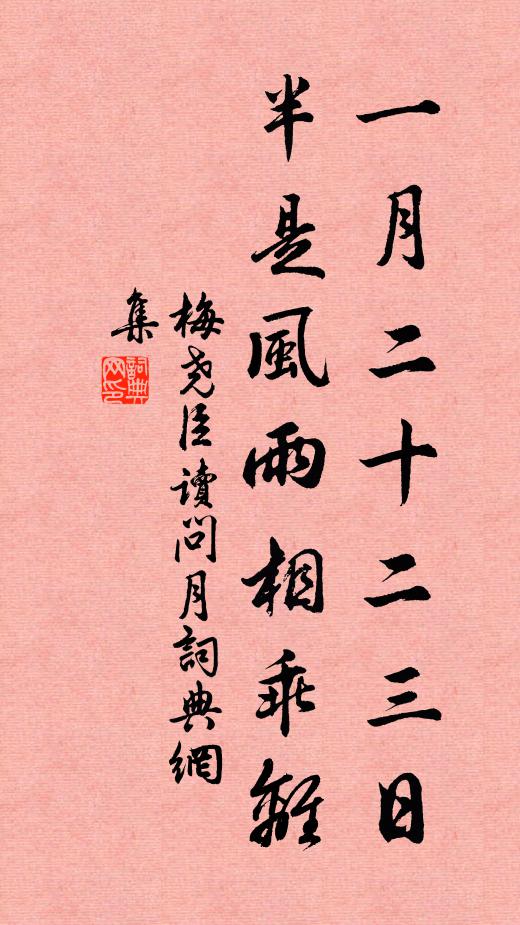 一月二十二三日
半是風雨相乖離
梅堯臣讀問月詞典網
集
詞典網印